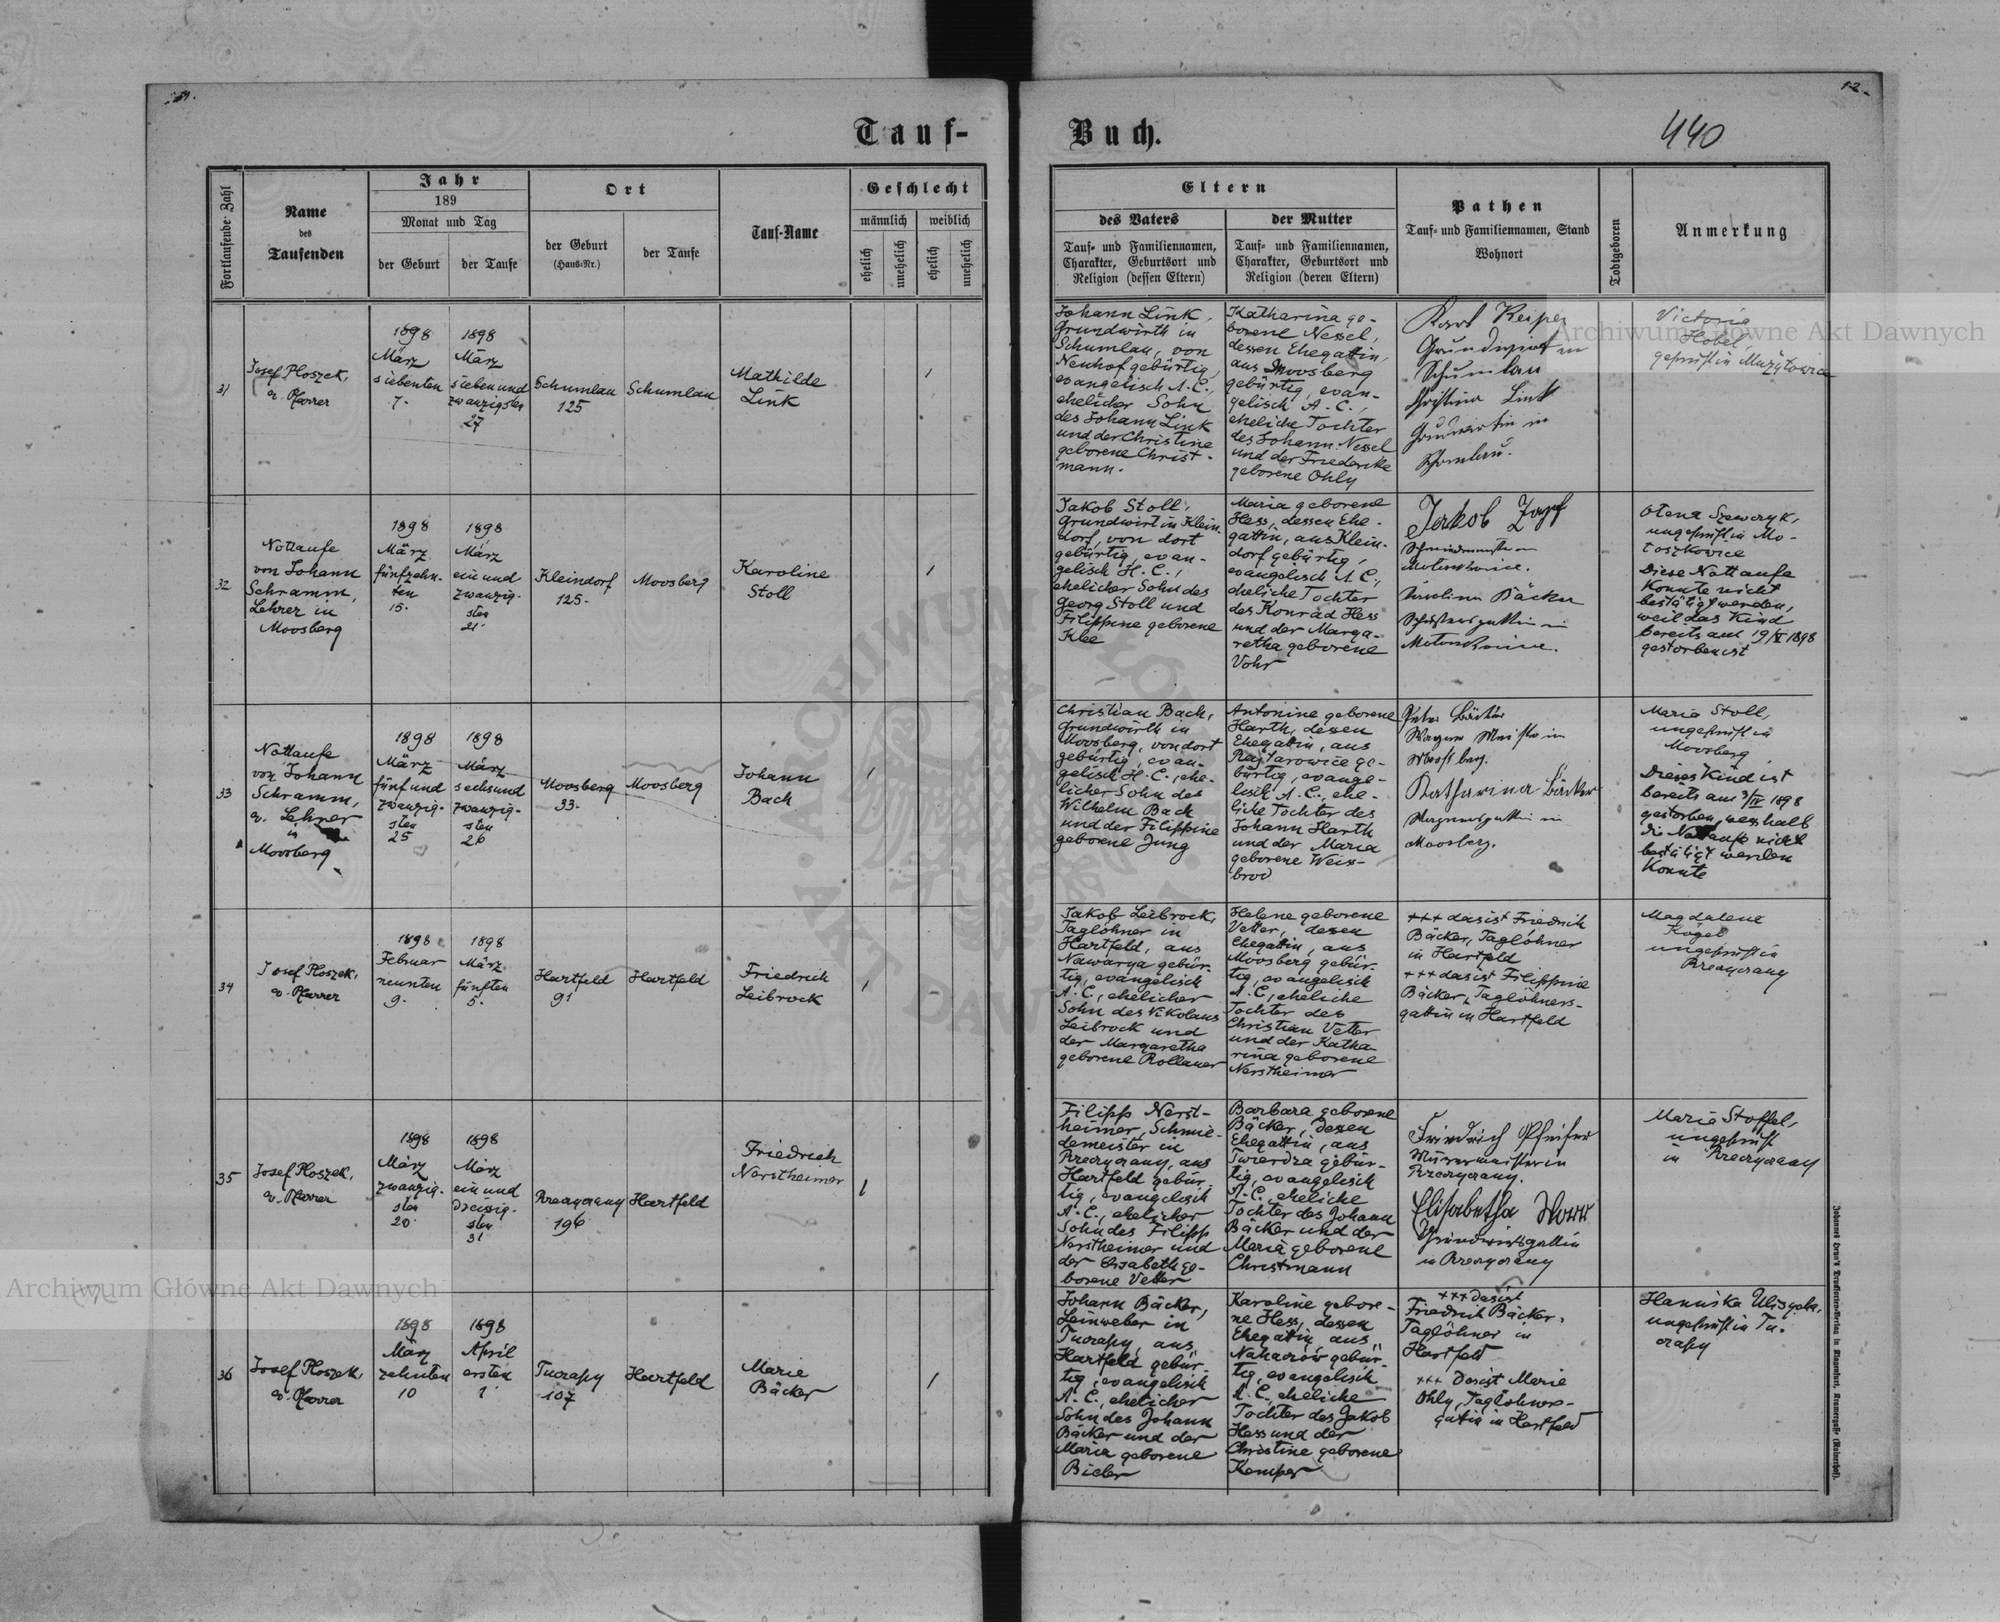 Tauf-
Buch.
12.
440
Fortlaufende Zahl
Name
des
Taufenden
Jahr
189
Monat und Tag
der Geburt
der Taufe
Ort
der Geburt
(Haus-Nr.)
der Taufe
Tauf-Name
Geschlecht
männlich
weiblich
ehelich
unehelich
ehelich
unehelich
Eltern
des Vaters
Tauf- und Familiennamen,
Charakter, Geburtsort und
Religion (dessen Eltern)
der Mutter
Tauf- und Familiennamen,
Charakter, Geburtsort und
Religion (deren Eltern)
Pathen
Tauf- und Familiennamen, Stand
Wohnort
Todtgeboren
Anmerkung
31
Josef Ploszek,
ev. Pfarrer
1898
März
siebenten
7.
1898
März
sieben und
zwanzigsten
27
Schumlau
125
Schumlau
Mathilde
Link
1
Johann Link,
Grundwirth in
Schumlau, von
Neuhof gebürtig,
evangelisch A.C.,
ehelicher Sohn
des Johann Link
und der Christine
geborene Christ-
mann.
Katharina ge-
borene Nessel,
dessen Ehegattin,
aus Moosberg
gebürtig, evan-
gelisch A.C.,
eheliche Tochter
des Johann Nessel
und der Friederike
geborene Ohly
Karl Keiper
Grundwirt in
Schumlau
Christina Link
Grundwirtin in
Schomlau.
Victoria
Hobel,
geprüft in Mużyłowice
32
Nottaufe
von Johann
Schramm,
Lehrer in
Moosberg
1898
März
fünfzehn-
ten
15.
1898
März
ein und
zwanzig-
sten
21.
Kleindorf
125.
Moosberg
Karoline
Stoll
1
Jakob Stoll,
Grundwirt in Klein-
dorf, von dort
gebürtig, evan-
gelisch H.C.,
ehelicher Sohn des
Georg Stoll und
Filippine geborene
Klee
Maria geborene
Hess, dessen Ehe-
gattin, aus Klein-
dorf gebürtig,
evangelisch A.C.,
eheliche Tochter
des Konrad Hess
und der Marga-
retha geborene
Vohr
Jakob Zopf
in
Karolina Bäcker
in
Olena Szewczyk,
ungeprüft in Mo-
toszkovice
Diese Nottaufe
konnte nicht
bestätigt werden,
weil das Kind
bereits am 1898
gestorben ist
33
Nottaufe
von Johann
Schramm,
ev. Lehrer
in
Moosberg
1898
März
fünf und
zwanzig-
sten
25
1898
März
sechs und
zwanzig-
sten
26
Moosberg
33.
Moosberg
Johann
Bach
1
Christian Bach,
Grundwirth in
Moosberg, von dort
gebürtig, evan-
gelisch H.C., ehe-
licher Sohn des
Wilhelm Bach
und der Filippine
geborene Jung
Antonine geborene
Harth, dessen
Ehegattin, aus
ge-
bürtig, evange-
lisch A.C., ehe-
liche Tochter des
Johann Harth
und der Maria
geborene Weiss-
brod
Peter Bäcker
Wagner Meister in
Moosberg.
Katharina Bäcker
Wagnersgattin in
Moosberg.
Maria Stoll,
ungeprüft in
Moosberg
Dieses Kind ist
bereits am 3/IV 1898
gestorben, weshalb
die Nottaufe nicht
bestätigt werden
konnte
34
Josef Ploszek,
ev. Pfarrer
1898
Februar
neunten
9.
1898
März
fünften
5.
Hartfeld
91
Hartfeld
Friedrich
Leibrock
1
Jakob Leibrock,
Taglöhner in
Hartfeld, aus
Nawarya gebür-
tig, evangelisch
A.C., ehelicher
Sohn des Nikolaus
Leibrock und
der Margaretha
geborene Rollauer
Helene geborene
Vetter, dessen
Ehegattin, aus
Moosberg gebür-
tig, evangelisch
A.C., eheliche
Tochter des
Christian Vetter
und der Katha-
rina geborene
Nerstheimer
+++ das ist Friedrich
Bäcker, Taglöhner
in Hartfeld
+++ das ist Filippine
Bäcker, Taglöhners-
gattin in Hartfeld
Magdalene
Kögel
ungeprüft in
Rreczyczany
35
Josef Ploszek,
ev. Pfarrer
1898
März
zwanzig-
sten
20.
1898
März
ein und
dreissig-
sten
31
Rreczyczany
196
Hartfeld
Friedrich
Nerstheimer
1
Filipp Nerst-
heimer, Schmie-
demeister in
Rreczyczany, aus
Hartfeld gebür-
tig, evangelisch
A.C., ehelicher
Sohn des Filipp
Nerstheimer und
der Elisabeth ge-
borene Vetter
Barbara geborene
Bäcker, dessen
Ehegattin, aus
Twierdza gebür-
tig, evangelisch
A.C., eheliche
Tochter des Johann
Bäcker und der
Maria geborene
Christmann
Friedrich Pfeifer
Maurermeister in
Rreczyczany.
Elisabetha
Grundwirtsgattin
in Rreczyczany
Maria Stoffel,
ungeprüft
in Rreczyczany
36
Josef Ploszek,
ev. Pfarrer
1898
März
zehnten
10
1898
April
ersten
1.
Tuczapy
107
Hartfeld
Marie
Bäcker
1
Johann Bäcker,
Leinweber in
Tuczapy, aus
Hartfeld gebür-
tig, evangelisch
A.C., ehelicher
Sohn des Johann
Bäcker und der
Maria geborene
Bieber
Karoline gebore-
ne Hess, dessen
Ehegattin aus
Nahaczów gebür-
tig, evangelisch
A.C., eheliche
Tochter des Jakob
Hess und der
Christine geborene
Kemper
+++ das ist
Friedrich Bäcker,
Taglöhner in
Hartfeld
+++ das ist Marie
Ohly, Taglöhners-
gattin in Hartfeld
Hanuśka
ungeprüft in Tu-
czapy
Archiwum Główne Akt Dawnych
Archiwum Główne Akt Dawnych